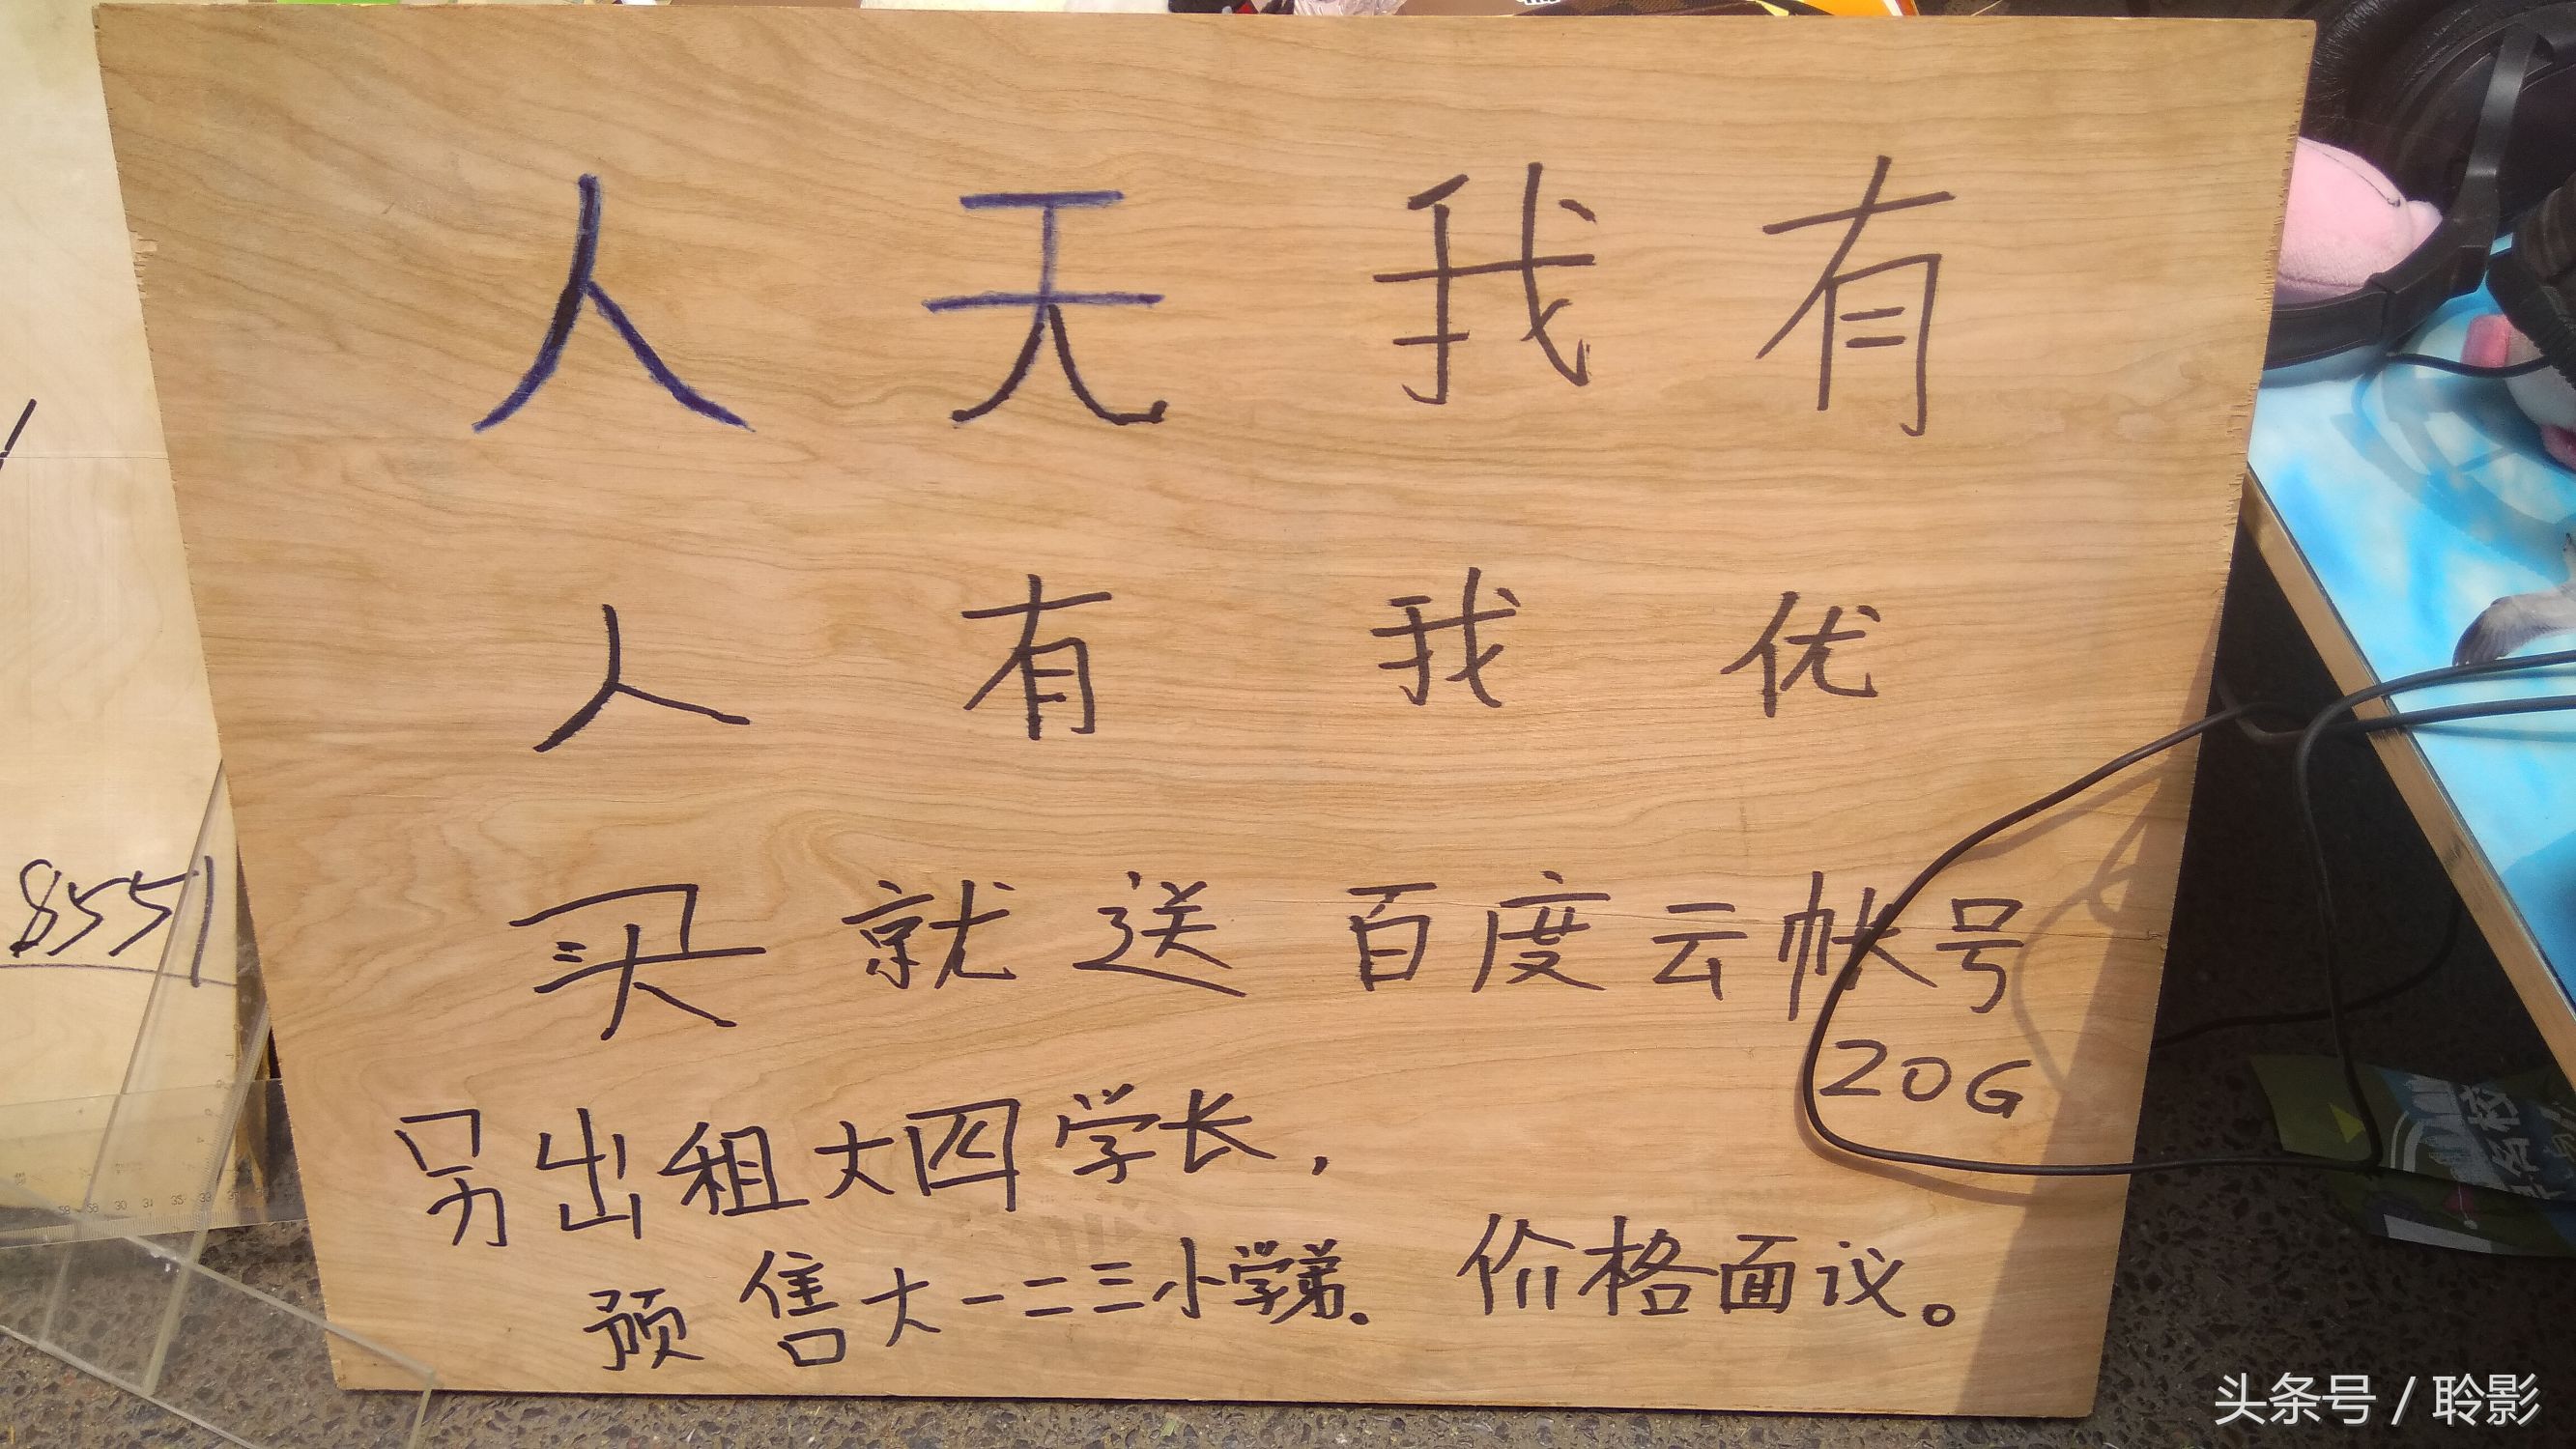 人无我有
人有我优
买就送 百度云帐号
20G
另出租大四学长，
预售大一二三小学弟. 价格面议。
8551
头条号 / 聆影